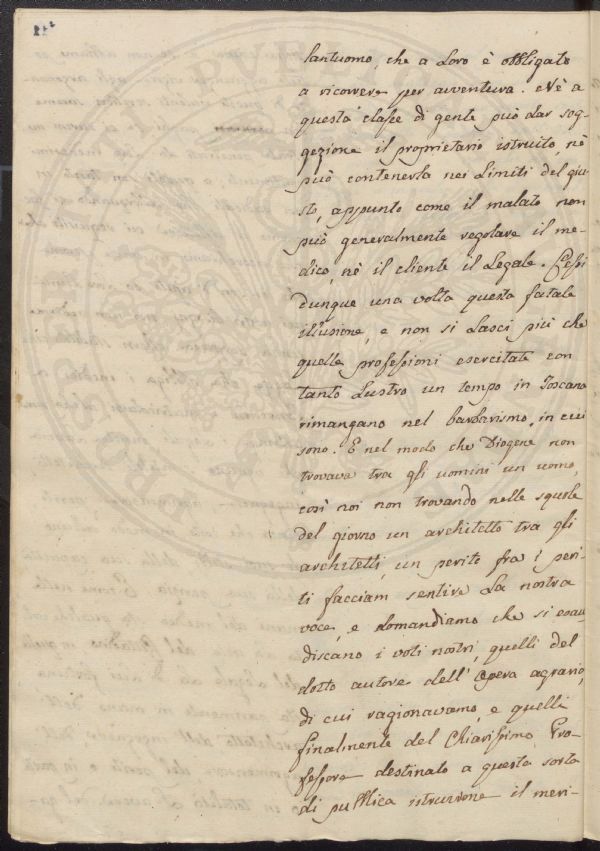 lantuomo che a Loro è obbligato
a ricorrere per avventura. Nè a
questa classe di gente può dar sog-
gezione il proprietario istruito, nè
può contenerla nei Limiti del giu-
sto, appunto come il malato non
può generalmente regolare il me-
dico, nè il cliente il Legale. Cessi
dunque una volta questa fatale
illusione, e non si Lasci più che
quelle professioni esercitate con
tanto Lustro un tempo in Toscana
rimangano nel barbarismo, in cui
sono. E nel modo che Diogene non
trovava tra gli uomini un uomo,
così noi non trovando nelle squole
del giorno un architetto tra gli
architetti, un perito fra i peri-
ti facciam sentire La nostra
voce, e domandiamo che si esau-
discano i voti nostri, quelli del
dotto autore dell'Opera agraria,
di cui ragionavamo, e quelli
finalmente del Chiarissimo Pro-
fessore destinato a questa sorta
di pubblica istruzione il meri-